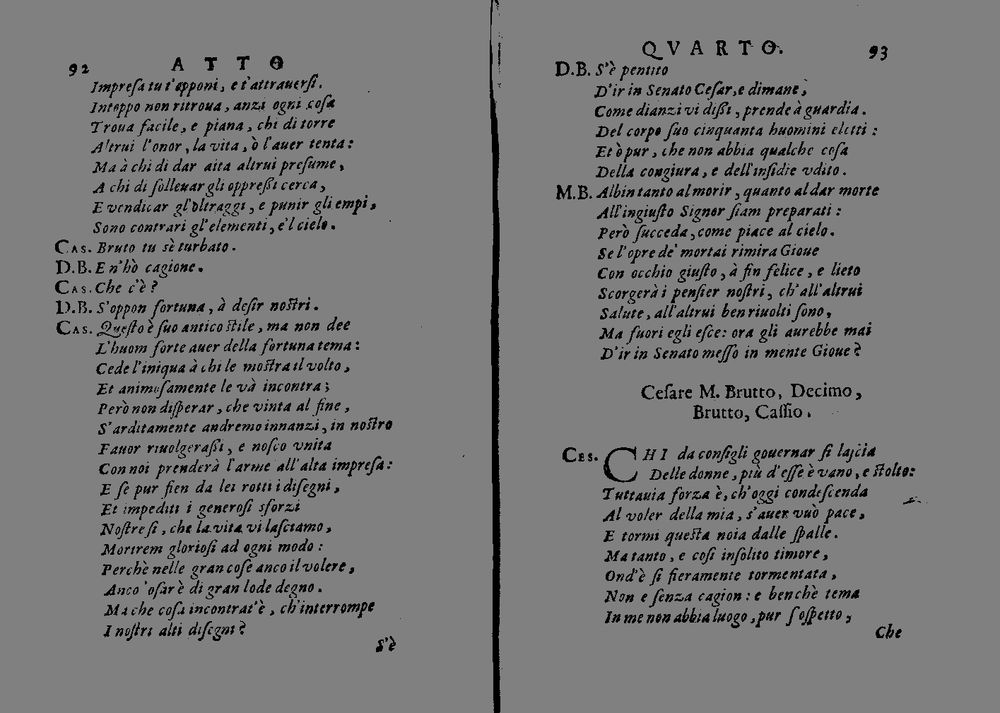 92 ATTO
Impresa tu t'opponi, e t'attraversi.
Intoppo non ritroua, anzi ogni cosa
Troua facile, e piana, chi di torre
Altrui l'onor, la vita, ò l'auer tenta:
Ma à chi di dar aita altrui presume,
A chi di solleuar gli oppressi cerca,
E vendicar gl'oltraggi, e punir gli empi,
Sono contrari gl'elementi, e'l cielo.
CAS. Bruto tu sè turbato.
D.B. E n'hò cagione.
CAS. Che c'è?
D.B. S'oppon fortuna, à desir nostri.
CAS. Questo è suo antico stile, ma non dee
L'huom forte auer della fortuna tema:
Cede l'iniqua à chi le mostra il volto,
Et animosamente le và incontra;
Però non disperar, che vinta al fine,
S'arditamente andremo innanzi, in nostro
Fauor riuolgerassi, e nosco vnita
Con noi prenderà l'arme all'alta impresa:
E se pur fien da lei rotti i disegni,
Et impediti i generosi sforzi
Nostre sì, che la vita vi lasciamo,
Morirem gloriosi ad ogni modo:
Perchè nelle gran cose anco il volere,
Anco 'osar è di gran lode degno.
Ma che cosa incontrat'è, ch'interrompe
I nostri alti disegni?
S'è
QVARTO. 93
D.B. S'è pentito
D'ir in Senato Cesar, e dimane,
Come dianzi vi dissi, prende à guardia.
Del corpo suo cinquanta huomini eletti:
Et ò pur, che non abbia qualche cosa
Della congiura, e dell'insidie vdito.
M.B. Albin tanto al morir, quanto al dar morte
All'ingiusto Signor siam preparati:
Però succeda, come piace al cielo.
Se l'opre de' mortai rimira Gioue
Con occhio giusto, à fin felice, e lieto
Scorgerà i pensier nostri, ch'all'altrui
Salute, all'altrui ben riuolti sono,
Ma fuori egli esce: ora gli aurebbe mai
D'ir in Senato messo in mente Gioue?
Cesare M. Brutto, Decimo,
Brutto, Cassio.
CES. CHI da consigli gouernar si lascia
Delle donne, più d'esse è vano, e stolto:
Tuttauia forza è, ch'oggi condescenda
Al voler della mia, s'auer vuò pace,
E tormi questa noia dalle spalle.
Ma tanto, e così insolito timore,
Ond'è si fieramente tormentata,
Non e senza cagion: e benchè tema
In me non abbia luogo, pur sospetto,
Che